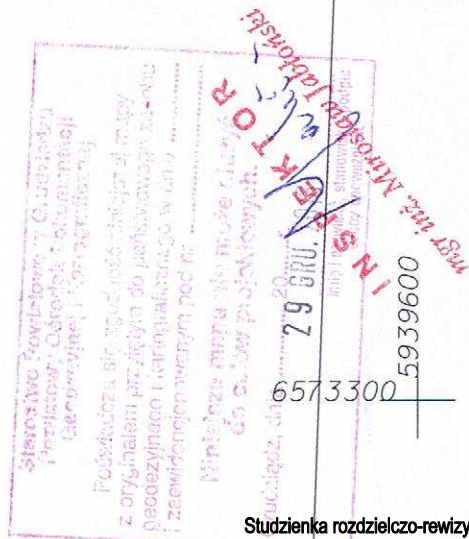 Starostwo Powiatowe w Grudziądzu
Ośrodek Dokumentacji
Geodezyjnej i Kartograficznej
Poświadcza się zgodność niniejszej mapy
z oryginałem przyjętym do państwowego zasobu
geodezyjnego i kartograficznego w dniu
i zaewidencjonowanym pod nr
Niniejsza mapa nie może służyć
do celów projektowych
Grudziądz, dn.
29 GRU. 20
INSPEKTOR
mgr inż. Mirosław Jabłoński
6573300
5939600
Studzienka rozdzielczo-rewizy